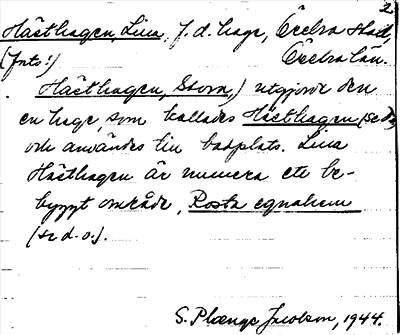 2.
Hästhagen, Lilla, f.d. hage, Örebro stad,
(forts!) Örebro län.
Hästhagen, Stora,) utgjorde den
en hage, som kallades Hästhagen (se d.o)
och användes till badplats. Lilla
Hästhagen är numera ett be-
byggt område, Rosta egnahem
(se d.o.).
S. Plænge Jacobson, 1944.